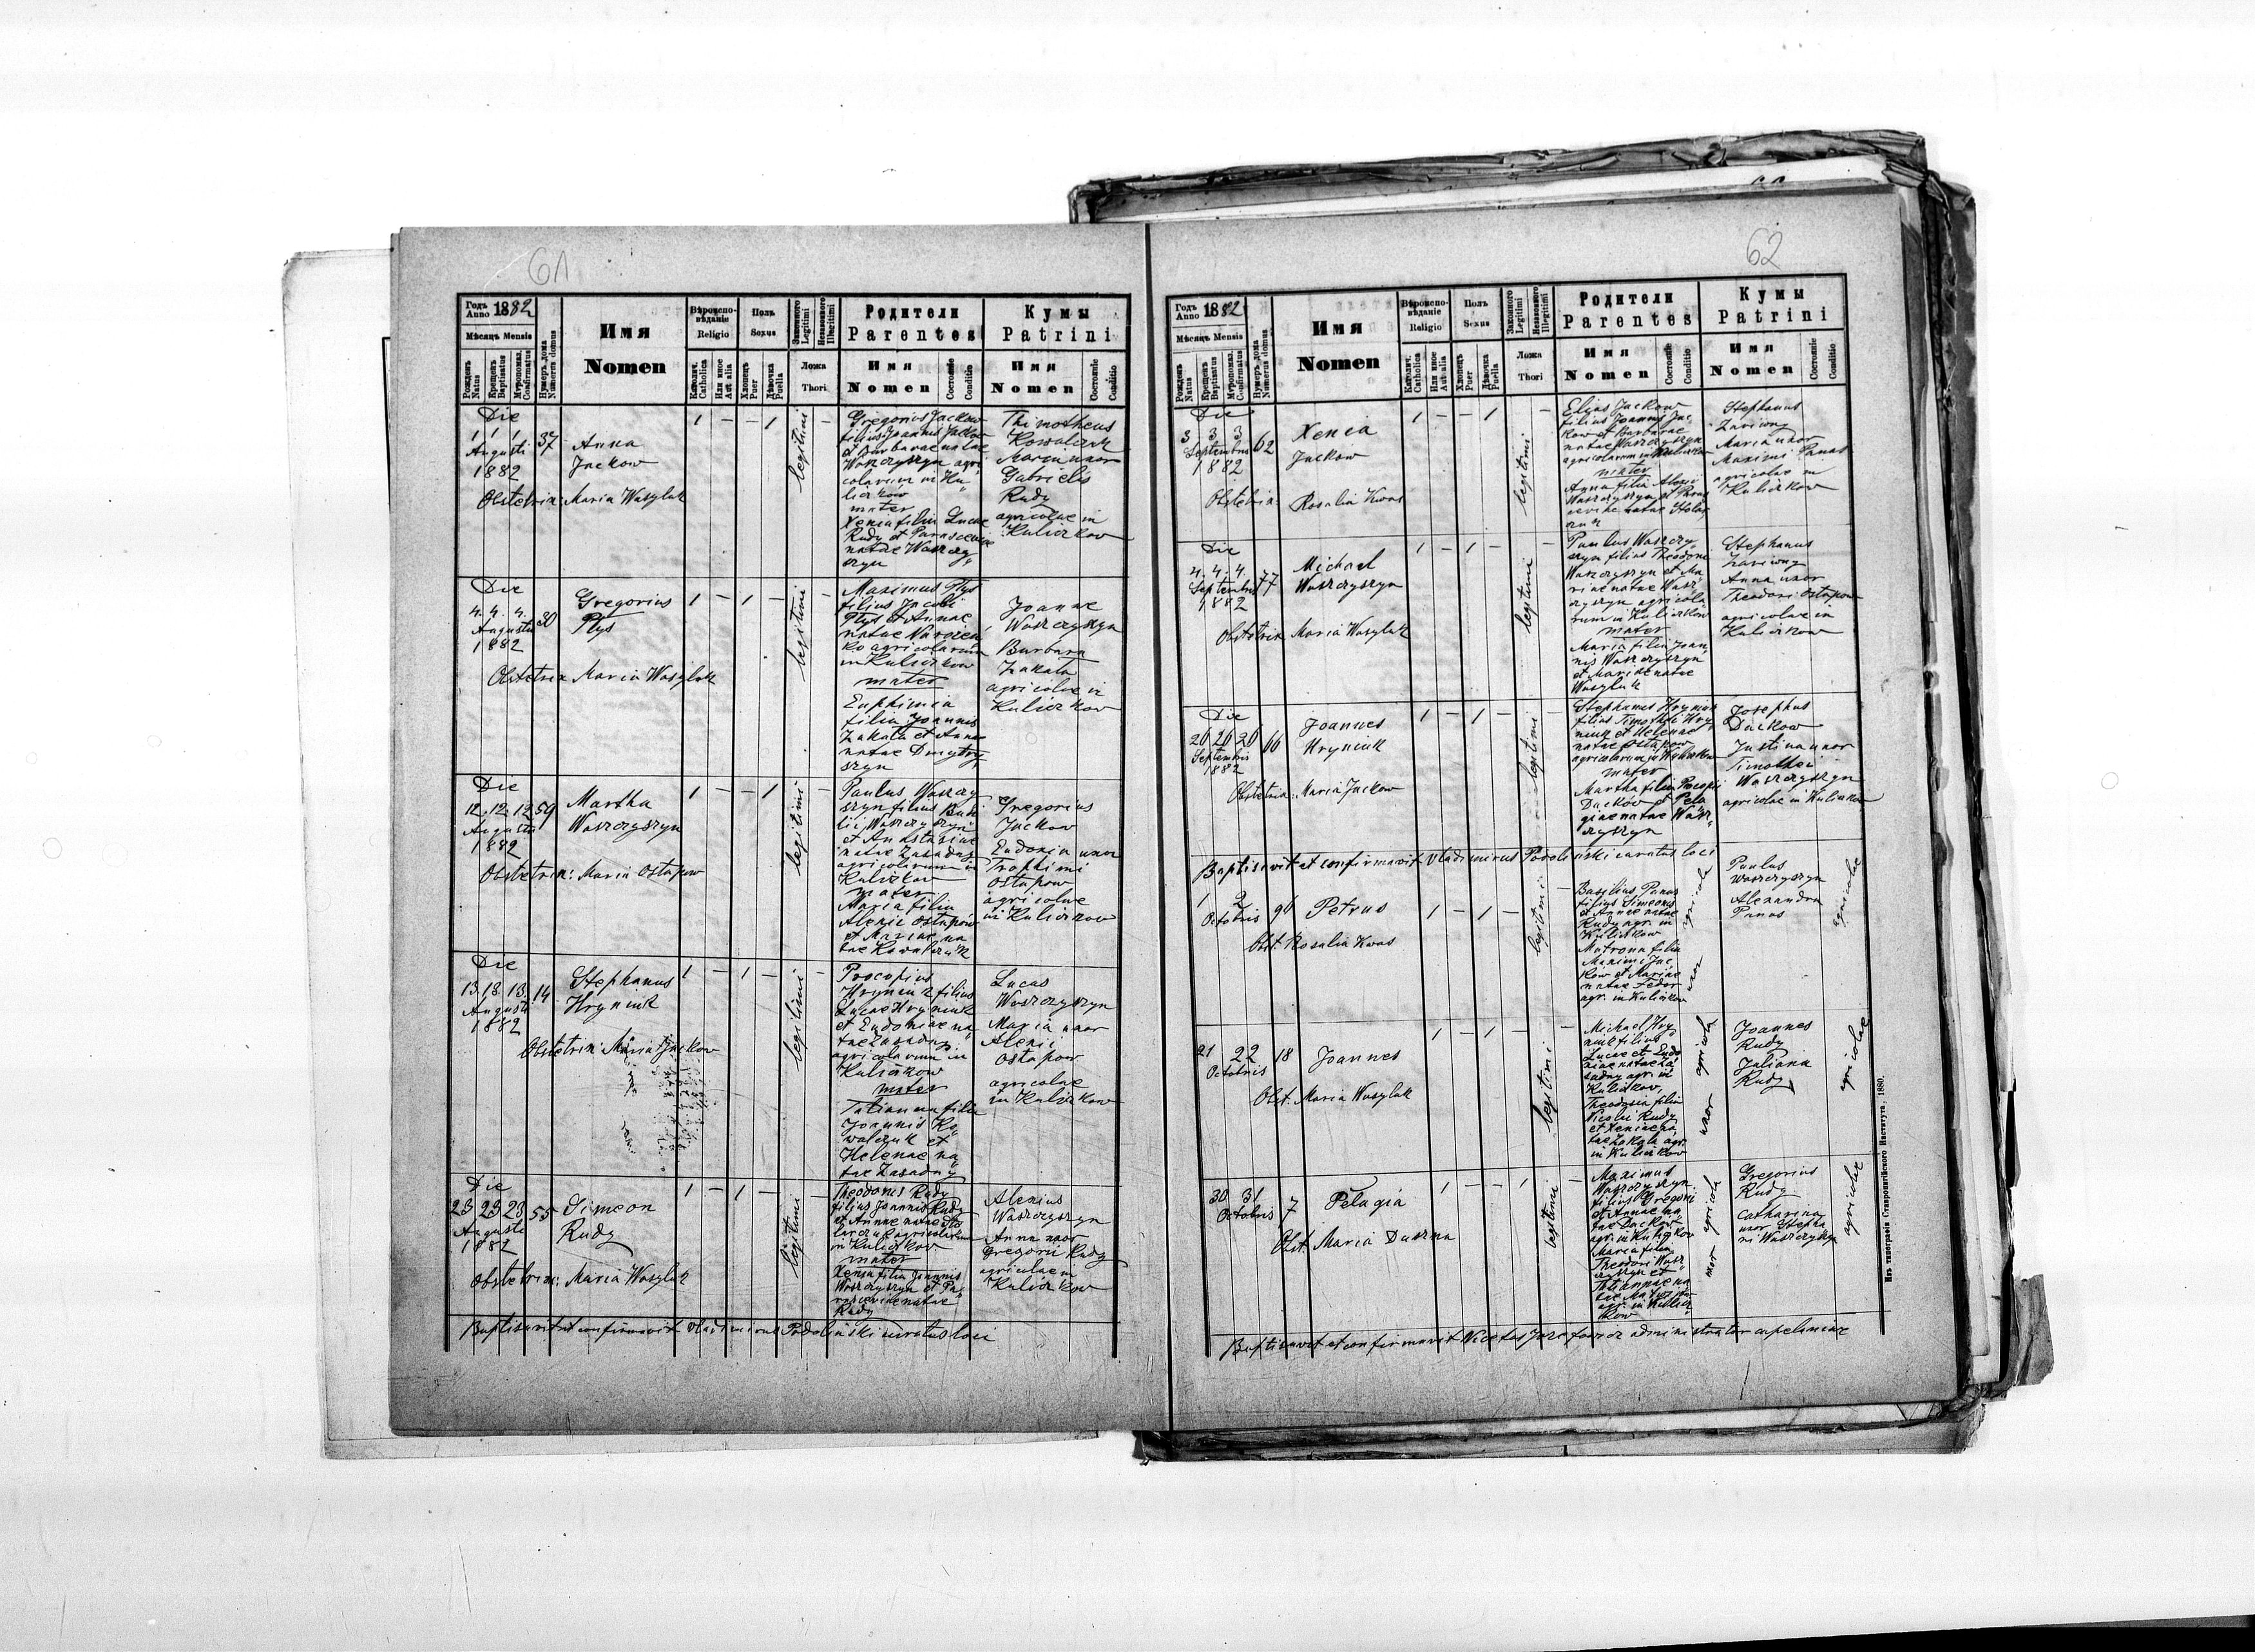 61
Годъ Anno 1882
Мѣсяцъ Mensis
Рожденъ Natus
Крещенъ Baptisatus
Мѵропомаз. Confirmatus
Нумеръ дома Numerus domus
Имя
Nomen
Вѣроиспо-вѣданіе
Religio
Католич. Catholica
Или иное Aut alia
Полъ
Sexus
Хлопецъ Puer
Дѣвочка Puella
Законного Legitimi
Незаконного Illegitimi
Ложа
Thori
Родители
Parentes
Имя
Nomen
Состояніе
Conditio
Кумы
Patrini
Имя
Nomen
Состояніе
Conditio
Die
1 1 1 37
Augusti
1882
Anna
Jackow
Obstetrix: Maria Wasyluk
1 – – 1 legitimi –
Gregorius Jackow
filius Joannis Jackow
et Barbarae natae
Waszczyszyn agri
colarum in Ku
liczkow
mater
Xenia filia Lucae
Rudy et Parascevae
natae Waszczy
szyn
Thimotheus
Kowalczuk
Maria uxor
Gabrielis
Rudy
agricolae in
Kuliczkow
Die
4. 4. 4. 30
Augusti
1882
Gregorius
Plys
Obstetrix Maria Wasyluk
1 – 1 – legitimi –
Maximus Plys
filius Jacobi
Plys et Annae
natae
ko agricolarum
in Kuliczkow
mater
Euphimia
filia Joannis
Zakala et Annae
natae Dmytry
szyn
Joannes
Waszczyszyn
Barbara
Zakala
agricolae in
Kuliczkow
Die
12. 12. 12 59
Augusti
1882
Martha
Waszczyszyn
Obstetrix: Maria Ostapow
1 – – 1 legitimi –
Paulus Waszczy
szyn filius Basi
lii Waszczyszyn
et Anastasiae
natae Zasadny
agricolarum in
Kuliczkow
mater
Maria filia
Alexii Ostapów
et Mariae na
tae Kowalczuk
Gregorius
Jackow
Eudoxia uxor
Trophimi
Ostapow
agricolae
in Kuliczkow
Die
13 13 13 14
Augusti
1882
Stephanus
Hryniuk
Obstetrix Maria Jackow
1 – 1 – legitimi –
Procopius
Hryniuk filius
Lucae Hryniuk
et Eudoxiae na
tae Zasadny
agricolarum in
Kuliczkow
mater
Tatianna filia
Joannis Ko
walczuk et
Helenae na
tae Zasadny
Lucas
Waszczyszyn
Maria uxor
Alexii
Ostapow
agricolae
in Kuliczkow
Die
23 23 23 55
Augusti
1882
Simeon
Rudy
Obstetrix: Maria Wasyluk
1 – 1 – legitimi –
Theodorus Rudy
filius Joannis Rudy
et Annae natae Sto
larczuk agricolarum
in Kuliczkow
mater
Xenia filia Joannis
Waszczyszyn et Pa
rascevae natae
Rudy
Alexius
Waszczyszyn
Anna uxor
Gregorii Rudy
agricolae in
Kuliczkow
Baptisavit et confirmavit Vladimirus Podoliński curatus loci
62
Годъ Anno 1882
Мѣсяцъ Mensis
Рожденъ Natus
Крещенъ Baptisatus
Мѵропомаз. Confirmatus
Нумеръ дома Numerus domus
Имя
Nomen
Вѣроиспо-вѣданіе
Religio
Католич. Catholica
Или иное Aut alia
Полъ
Sexus
Хлопецъ Puer
Дѣвочка Puella
Законного Legitimi
Незаконного Illegitimi
Ложа
Thori
Родители
Parentes
Имя
Nomen
Состояніе
Conditio
Кумы
Patrini
Имя
Nomen
Состояніе
Conditio
Die
3 3 3 62
Septembris
1882
Xenia
Jackow
Obstetrix Rosalia Kwas
1 – – 1 legitimi –
Elias Jackow
filius Joannis Jac
kow et Barbarae
natae Waszczyszyn
agricolarum in Kuliczkow
mater
Anna filia Alexii
Waszczyszyn et Paras
cevae natae Stolar
czuk
Stephanus
Zariwny
Maria uxor
Maximi Panas
agricolae in
Kuliczkow
Die
4. 4. 4. 77
Septembris
1882
Michael
Waszczyszyn
Obstetrix Maria Wasyluk
1 – 1 – legitimi –
Paulus Waszczy
szyn filius Theodori
Waszczyszyn et Ma
riae natae Wasz
czyszyn agricola
rum in Kuliczkow
mater
Maria filia Joan
nis Waszczyszyn
et Mariae natae
Wasyluk
Stephanus
Zariwny
Anna uxor
Theodori Ostapow
agricolae in
Kuliczkow
Die
26 26 26 66
Septembris
1882
Joannes
Hryniuk
Obstetrix: Maria Jackow
1 – 1 – legitimi
Stephanus Hryniuk
filius Timothei Hry
niuk et Helenae
natae Ostapow
agricolarum in Kuliczkow
mater
Martha filia Procopii
Dackow et Pela
giae natae Wasz
czyszyn
Josephus
Dackow
Justina uxor
Timothei
Waszczyszyn
agricolae in Kuliczkow
Baptisavit et confirmavit Vladimirus Podoliński curatus loci
1 2 96
Octobris
Petrus
Obst. Rosalia Kwas
1 – 1 – legitimi –
Basilius Panas
filius Simeonis
et Annae natae
Rudy agr. in
Kuliczkow
Matrona filia
Maximi Jac
kow et Mariae
natae Fedor
agr. in Kuliczkow
agricola
uxor
Paulus
Waszczyszyn
Alexandra
Panas
agricolae
21 22 18
Octobris
Joannes
Obst. Maria Wasyluk
1 – 1 – legitimi –
Michael Hry
niuk filius
Lucae et Eudo
xiae natae Za
sadny agr. in
Kuliczkow,
Theodosia filia
Nicolai Rudy
et Xeniae na
tae Zakala agr.
in Kuliczkow
agricola
uxor
Joannes
Rudy
Juliana
Rudy
agricolae
30 31 7
Octobris
Pelagia
Obst. Maria Duszna
1 – – 1 legitimi –
Maximus
Waszczyszyn
filius Gregorii
et Annae na
tae Dackow
agr. in Kuliczkow
Maria filia
Theodori Wasz
czyszyn et
Tatiannae na
tae
agr. in Kulicz
kow
agricola
uxor
Gregorius
Rudy
Catharina
uxor Stepha
ni Waszczyszyn
agricolae
Baptisavit et confirmavit Nicetas administrator capelaniae
Изъ типографіи Ставропигійского Института, 1880.